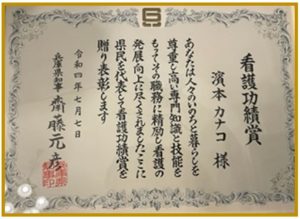 看護功績賞
濱本 カナコ 様
あなたは人々のいのちと暮らしを
尊重し高い専門知識と技能を
もってその職務に精励し看護の
発展向上に尽くされましたここに
県民を代表して看護功績賞を
贈り表彰します
令和四年七月七日
兵庫県知事 齋藤元彦